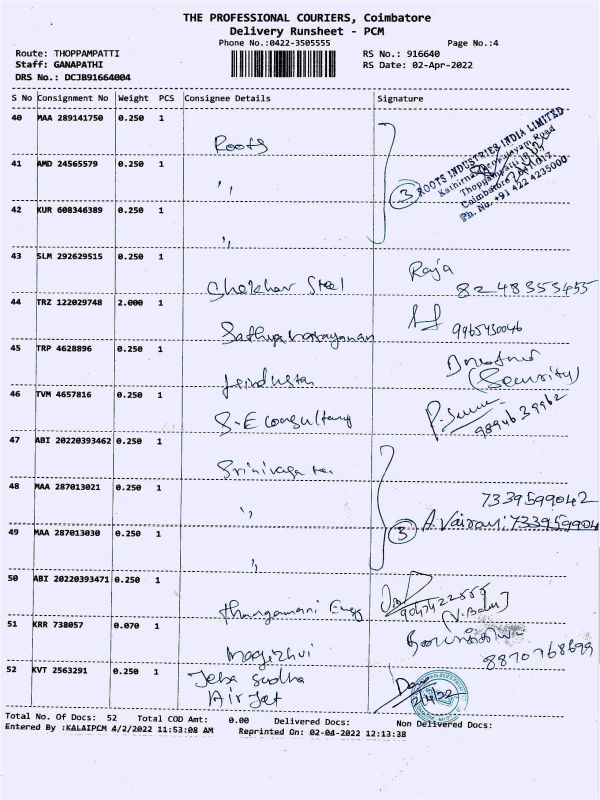 THE PROFESSIONAL COURIERS, Coimbatore
Delivery Runsheet - PCM
Phone No.:0422-3505555 Page No.:4
Route: THOPPAMPATTI RS No.: 916640
Staff: GANAPATHI RS Date: 02-Apr-2022
DRS No.: DCJB91664004
S No Consignment No Weight PCS Consignee Details Signature
40 MAA 289141750 0.250 1
Roots
ROOTS INDUSTRIES INDIA LIMITED
Thoppampatti
Coimbatore
Ph. No. +91 422 4235000
3
41 AMD 24565579 0.250 1
"
42 KUR 608346389 0.250 1
"
43 SLM 292629515 0.250 1
Shekhar Steel Raja
8248353455
44 TRZ 122029748 2.000 1
Sathyanarayanan 9965430046
45 TRP 4628896 0.250 1
(Security)
46 TVM 4657816 0.250 1
S.E consultany 9894639962
47 ABI 20220393462 0.250 1
Srinivasa
48 MAA 287013021 0.250 1
" 7339599042
3 A.Vairavi:733959904
49 MAA 287013030 0.250 1
"
50 ABI 20220393471 0.250 1
Thangamani Engg
51 KRR 738057 0.070 1
Magizhvi 8870768699
52 KVT 2563291 0.250 1
Jeba Sudha
Air Jet 2/4/22
Total No. Of Docs: 52 Total COD Amt: 0.00 Delivered Docs: Non Delivered Docs:
Entered By :KALAIPCM 4/2/2022 11:53:08 AM Reprinted On: 02-04-2022 12:13:38